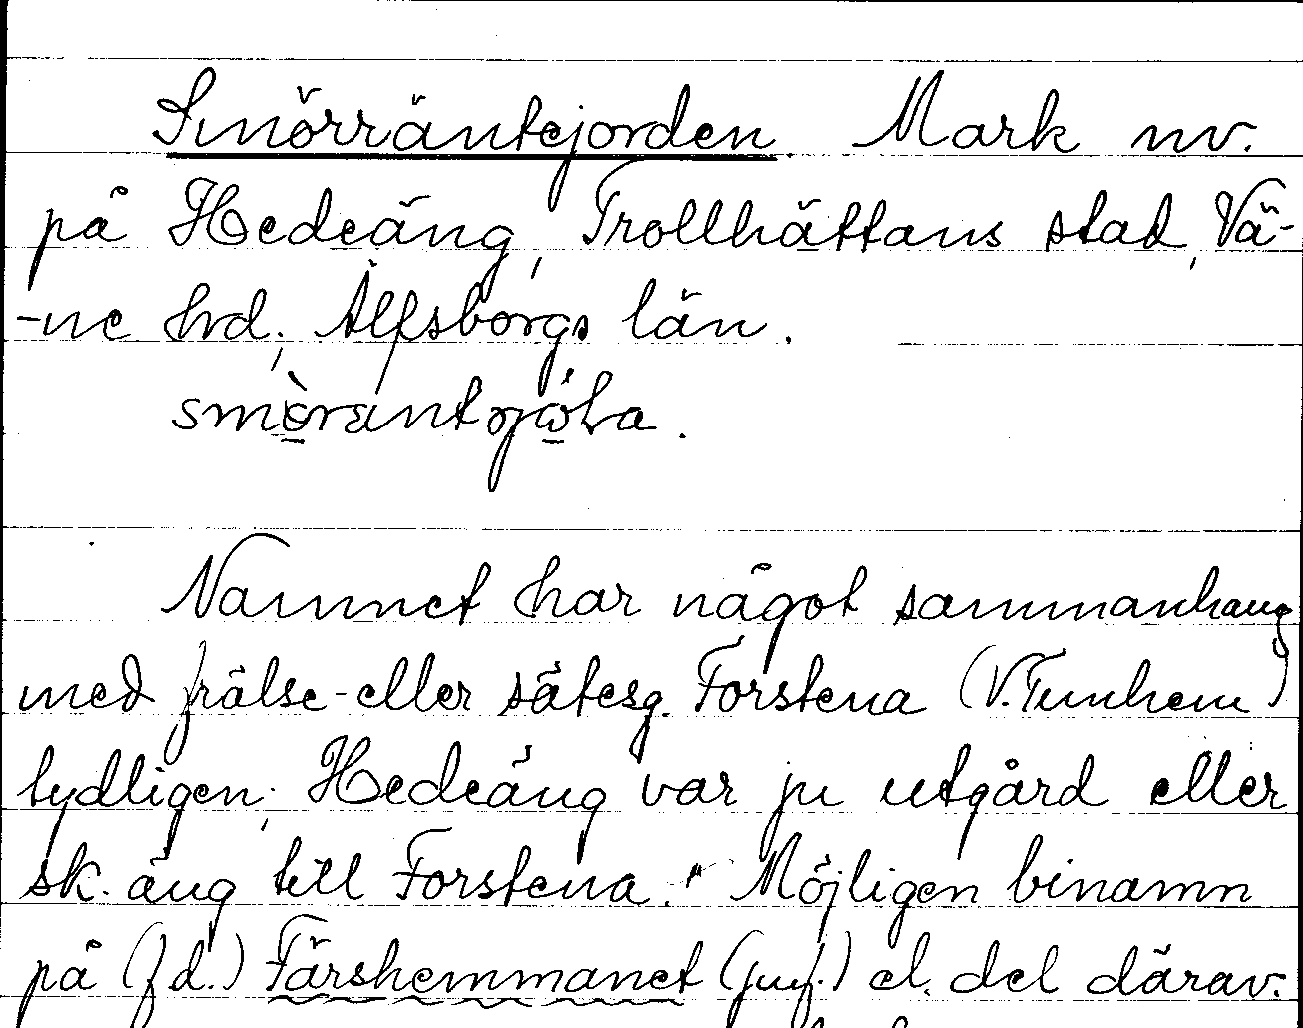 Smörräntejorden. Mark nv.
på Hedeäng, Trollhättans stad, Vä-
-ne hrd; Älfsborgs län.
Namnet har något sammanhang
med frälse- eller sätesg. Forstena (V. Tunhem)
tydligen; Hedeäng var ju utgård eller
sk. äng till Forstena. Möjligen binamn
på (fd.) Färshemmanet (jmf.) el. del därav.